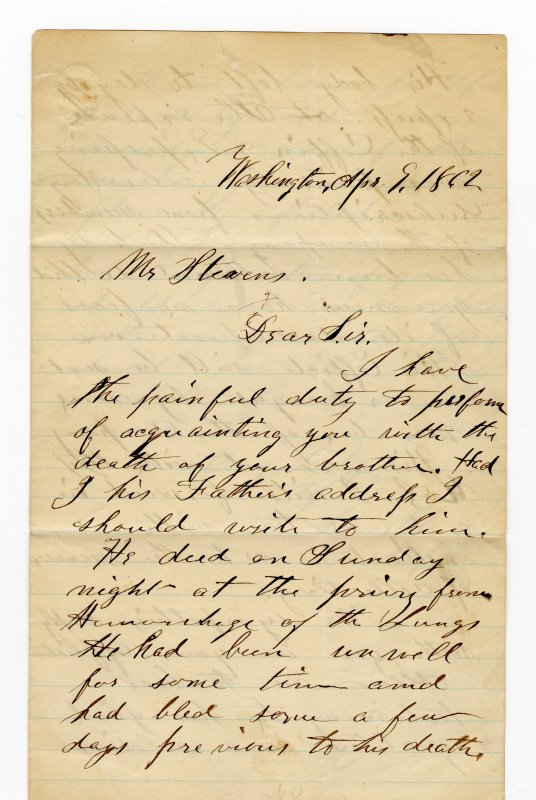 Washington, Apr 9, 1862
Mr Stevens.
Dear Sir.
I have
the painful duty to perform
of acquainting you with the
death of your brother. Had
I his Father's address I
should write to him.
He died on Sunday
night at the privy from
Hemorrhage of th Lungs
He had been unwell
for some time amd
had bled some a few
days previous to his death.